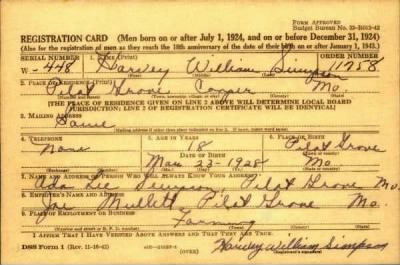 FORM APPROVED
Budget Bureau No. 33-R012-42
REGISTRATION CARD (Men born on or after July 1, 1924, and on or before December 31, 1924)
(Also for the registration of men as they reach the 18th anniversary of the date of their birth on or after January 1, 1943.)
SERIAL NUMBER 1. NAME (Print) ORDER NUMBER
W-448 Harvey William Simpson 11958
(First) (Middle) (Last)
2. PLACE OF RESIDENCE (Print)
Pilot Grove Cooper Mo.
(Number and street) (Town, township, village, or city) (County) (State)
[THE PLACE OF RESIDENCE GIVEN ON LINE 2 ABOVE WILL DETERMINE LOCAL BOARD
JURISDICTION; LINE 2 OF REGISTRATION CERTIFICATE WILL BE IDENTICAL]
3. MAILING ADDRESS
Same
[Mailing address if other than place indicated on line 2. If same, insert word same]
4. TELEPHONE 5. AGE IN YEARS 6. PLACE OF BIRTH
None 18 Pilot Grove
DATE OF BIRTH
Mar 23-1928 Mo.
(Exchange) (Number) (Mo.) (Day) (Yr.) (State or country)
7. NAME AND ADDRESS OF PERSON WHO WILL ALWAYS KNOW YOUR ADDRESS
Ada Lee Simpson Pilot Grove Mo.
8. EMPLOYER'S NAME AND ADDRESS
Joe Mullett Pilot Grove Mo.
9. PLACE OF EMPLOYMENT OR BUSINESS
Farming
(Number and street or R. F. D. number) (Town) (County) (State)
I AFFIRM THAT I HAVE VERIFIED ABOVE ANSWERS AND THAT THEY ARE TRUE.
DSS Form 1 (Rev. 11-16-42) (OVER) Harvey William Simpson